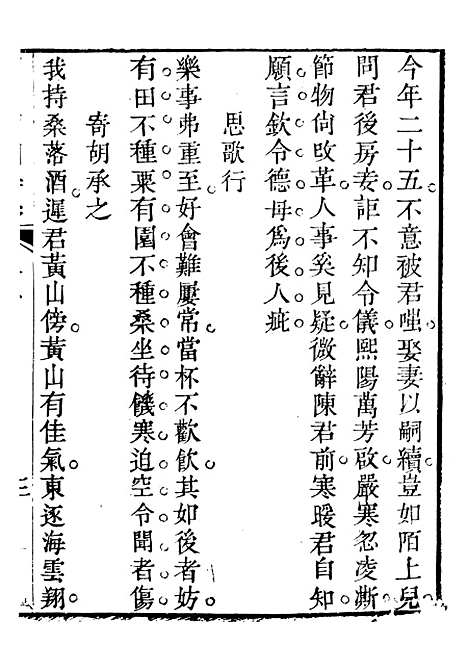 今年二十五。不意被君嗤。娶妻以嗣續。豈如陌上兒。
問君後房妾。詎不知令儀。熙陽萬芳啟。嚴寒忽凌澌。
節物尙改革。人事奚見疑。微辭陳君前。寒暖君自知。
願言欽令德。毋爲後人疵。
思歌行
樂事弗重至。好會難屢常。當杯不歡飮。其如後者妨。
有田不種粟。有園不種桑。坐待饑寒迫。空令聞者傷。
寄胡承之
我持桑落酒。遲君黃山傍。黃山有佳氣。東逐海雲翔。